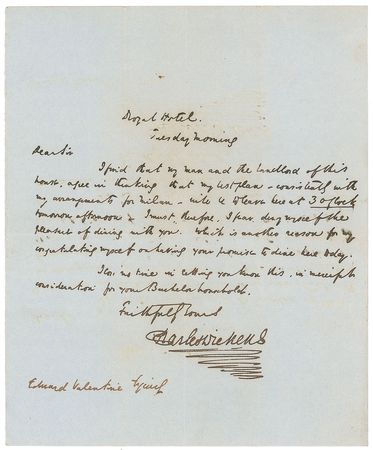 Royal Hotel.
Tuesday morning
Dear Sir
I find that my man and the landlord of this
house, agree in thinking that my best plan - consistently with
my arrangements for Milan - will be to leave here at 3 o'Clock
tomorrow afternoon. I must, therefore, I fear deny myself the
pleasure of dining with you. Which is another reason for my
congratulating myself on having your promise to dine here today.
I lose no time in letting you know this, in merciful
consideration for your Bachelor household.
Faithfully Yours
Charles Dickens
Edward Valentine Esquire